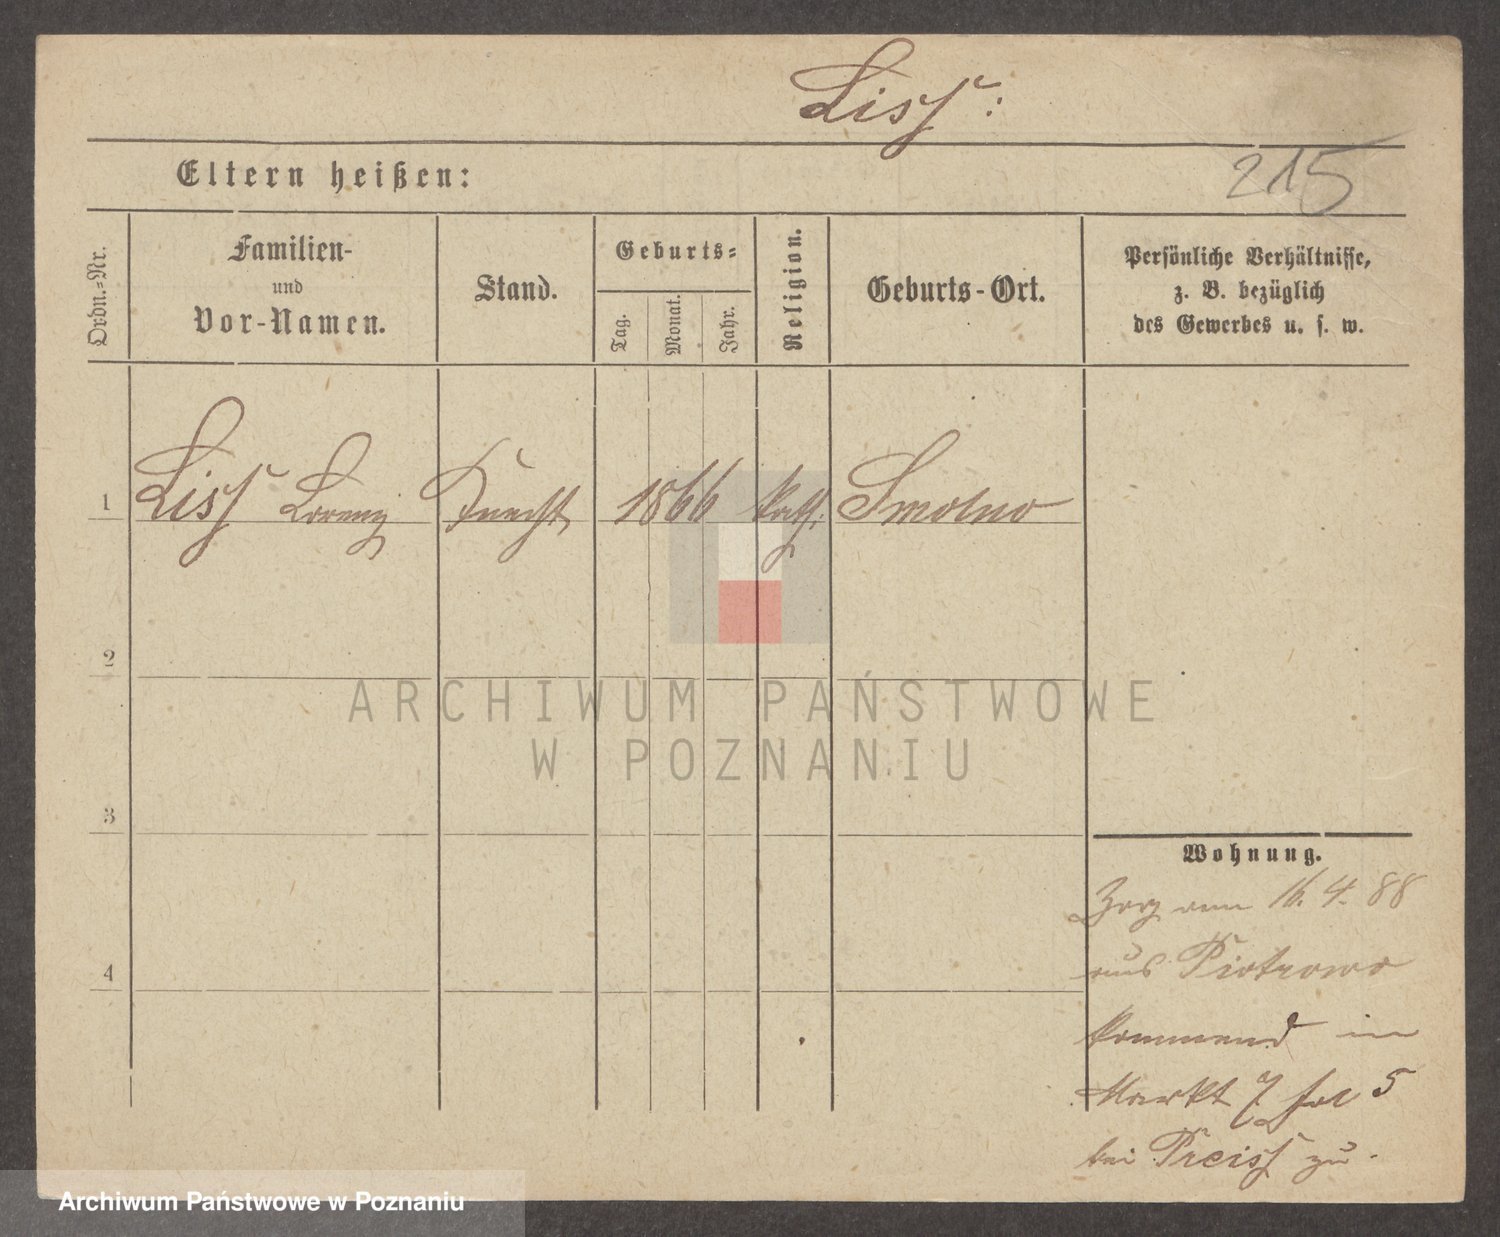 Liss:
Eltern heißen:
215
Ordn.-Nr.
Familien-
und
Vor-Namen.
Stand.
Geburts-
Tag.
Monat.
Jahr.
Religion.
Geburts-Ort.
Persönliche Verhältnisse,
z. B. bezüglich
des Gewerbes u. s. w.
1 Liss Lorenz Knecht 1866 kath. Smolno
2
3
4
Wohnung.
Zog am 16. 4. 88
aus Piotrowo
kommend in
Markt 7
5
bei Preiss zu.
ARCHIWUM PAŃSTWOWE
W POZNANIU
Archiwum Państwowe w Poznaniu